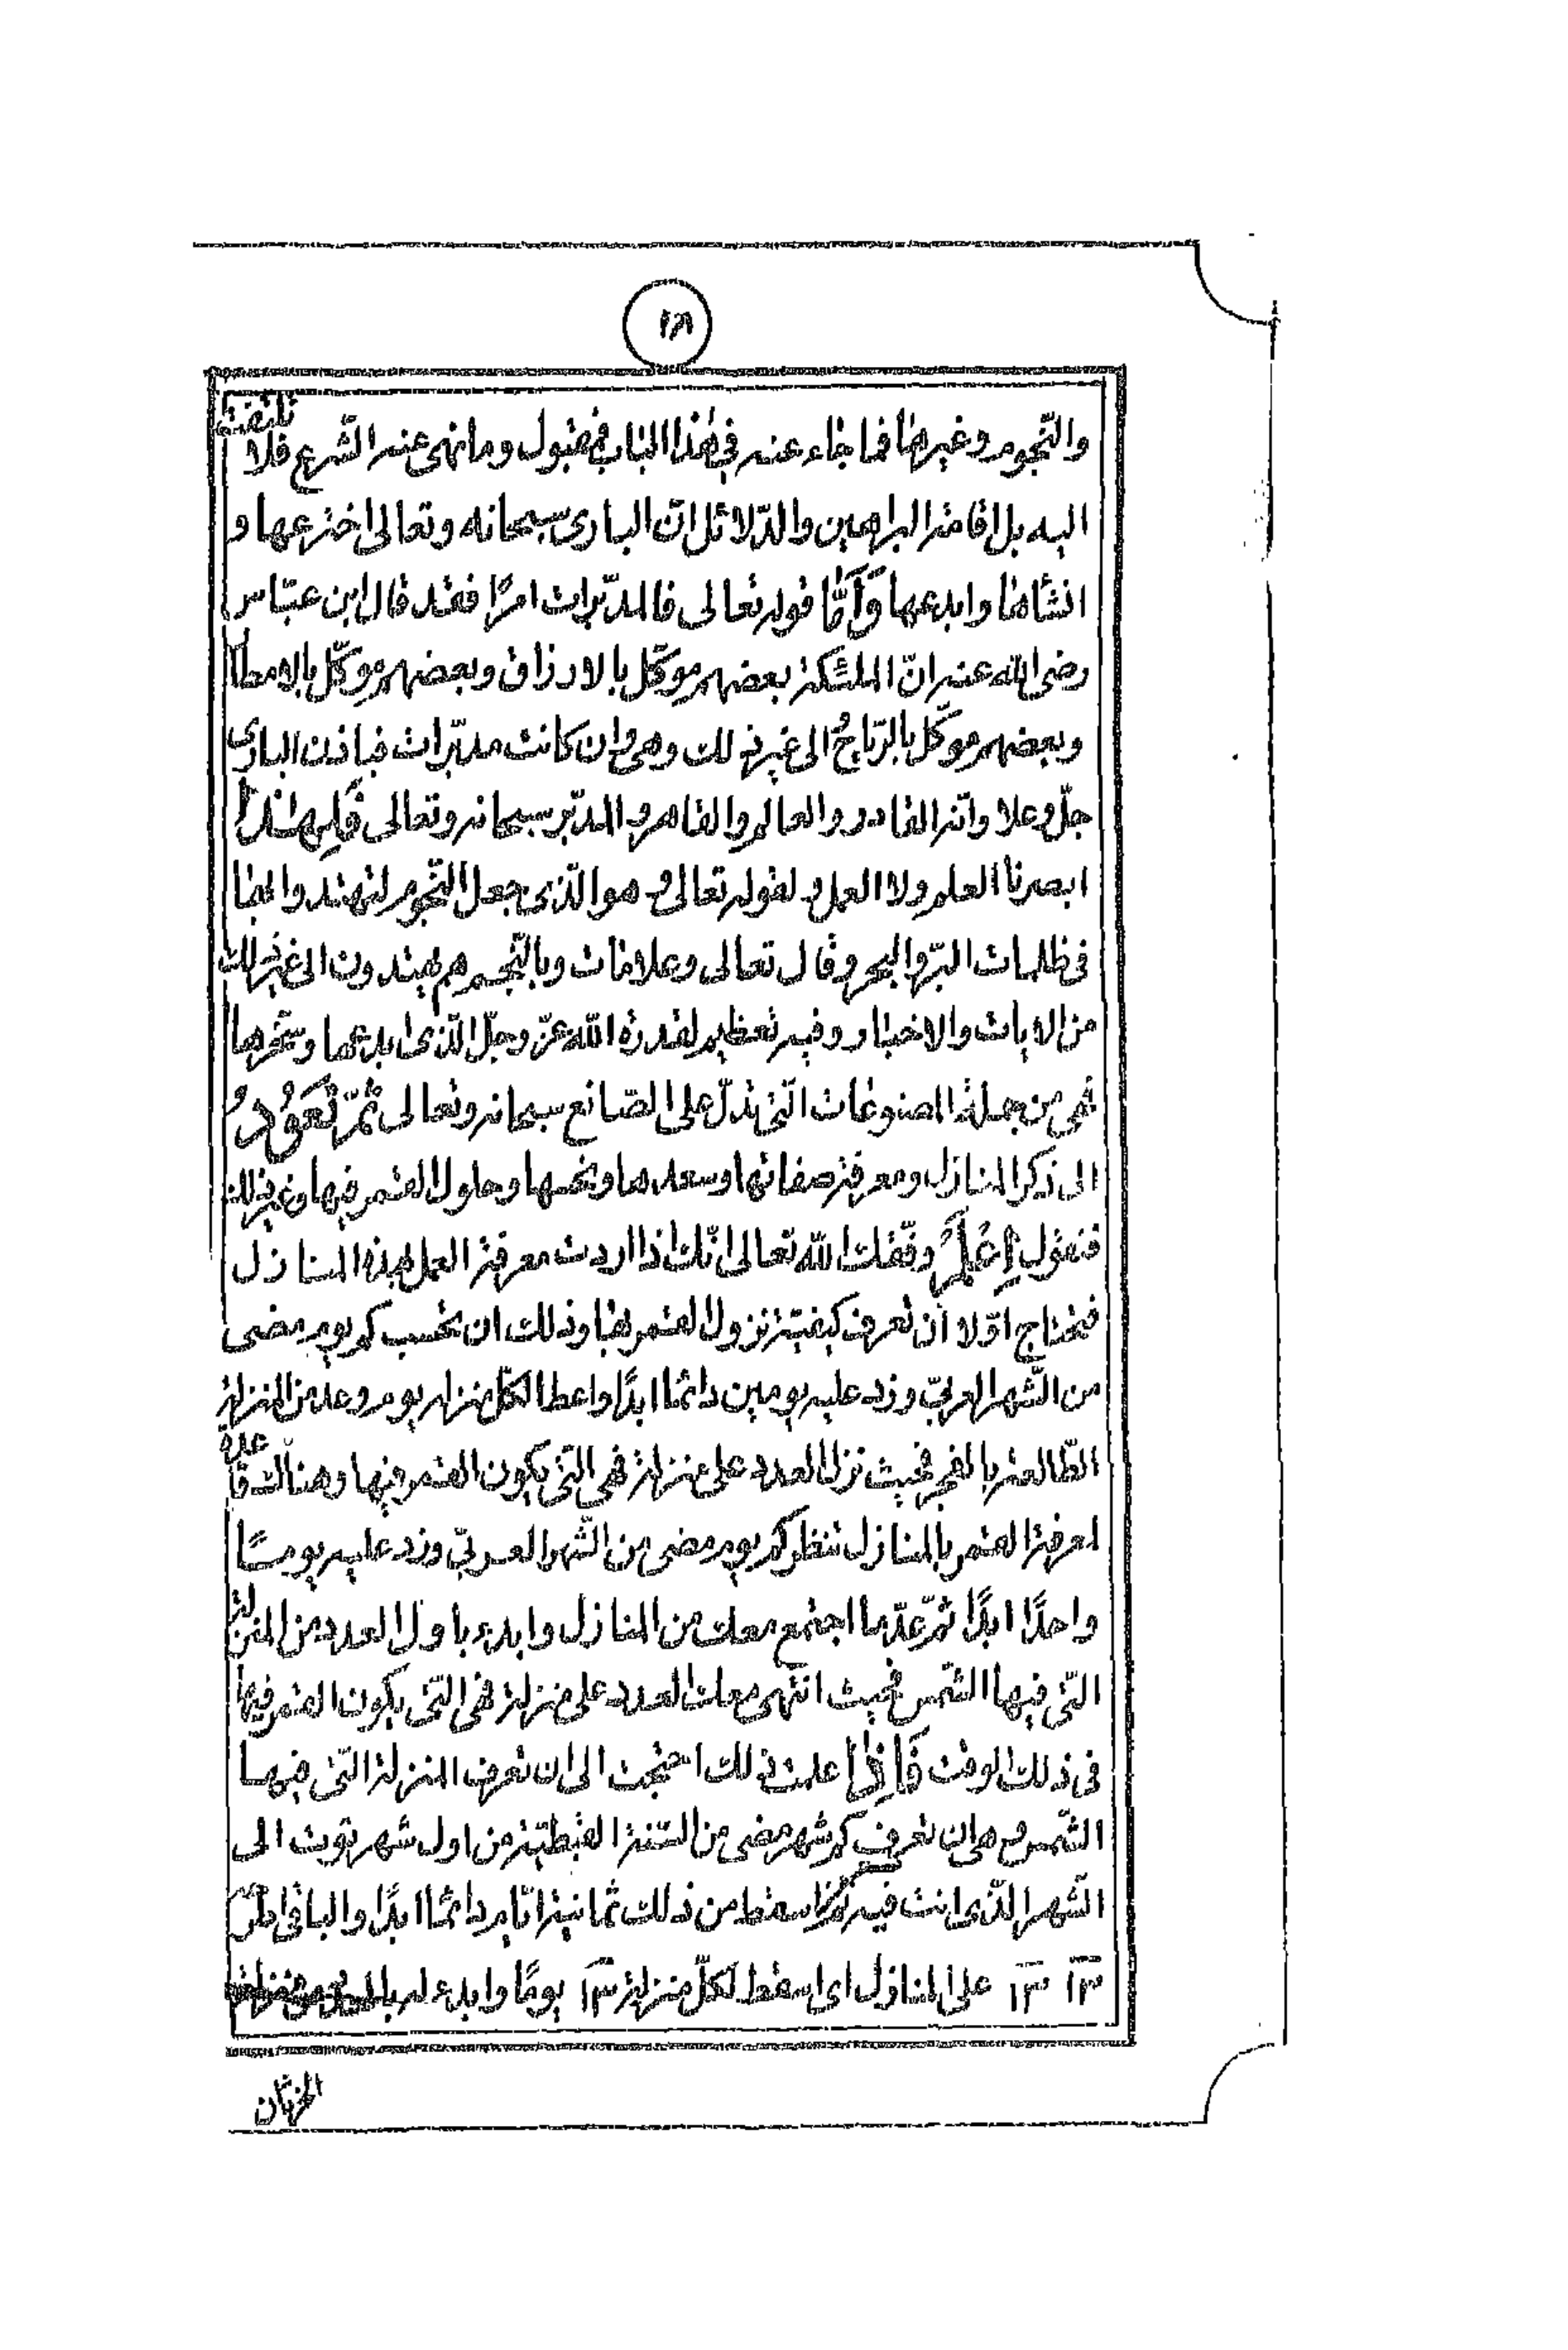 ١٨
والنّجوم وغيرها فما جاء عنه في هذا الباب فمقبول وما نهى عنه الشّرع فلا تلتفت
اليه بل اقامة البراهين والدّلائل انّ البارى سبحانه وتعالى اخترعها و
انشأها وابدعها وَأَمَّا قوله تعالى فالمدبّرات امرًا فقد قال ابن عبّاس
رضى الله عنه انّ الملئكة بعضهم موكّل بالارزاق وبعضهم موكّل بالامطا
وبعضهم موكّل بالرّياح الى غير ذلك وهى وان كانت مدبّرات فباذن البارى
جلّ وعلا وانّه القادر والعالم والقاهر والمدبّر سبحانه وتعالى فَلِهذا
ابصرنا العلم ولا العمل لقوله تعالى وهو الّذى جعل النّجوم لتهتدوا بها
فى ظلمات البرّ والبحر وقال تعالى وعلامات وبالنّجم هم يهتدون الى غير ذلك
من الايات والاخبار وفيه تعظيم لقدرة الله عزّ وجلّ الّذى ابدعها وسخّرها
فهى من جملة المصنوعات الّتى تدلّ على الصّانع سبحانه وتعالى ثُمَّ نَعُودُ
الى ذكر المنازل ومعرفة صفاتها وسعدها ونحسها وحلول القمر فيها وغير ذلك
فنقول اِعْلَمْ وفّقك الله تعالى انّك اذا اردت معرفة العمل بهذه المنازل
فتحتاج اوّلا ان تعرف كيفيّة نزول القمر بها وذلك ان تحسب كم يوم مضى
من الشّهر العربىّ وزد عليه يومين دائما ابدًا واعط الكلّ منزله يوم وعد من المنزلة
الطّالعة بالفجر فحيث نزل العدد على منزلة فهى التى يكون القمر فيها وهناك قاعدة
لمعرفة القمر بالمنازل تنظر كم يوم مضى من الشّهر العربىّ وزد عليه يومًا
واحدًا ابدًا ثمّ عدّ ما اجتمع معك من المنازل وابدء باول العدد من المنزلة
التى فيها الشّمس فحيث انتهى معك العدد على منزلة فهى التى يكون القمر فيها
فى ذلك الوقت فَإِذَا علمت ذلك احتجت الى ان تعرف المنزلة التى فيها
الشّمس وهى ان تعرف كم شهر مضى من السّنة القبطيّة من اول شهر توت الى
الشّهر الّذى انت فيه ثمّ اسقط من ذلك ثمانية ايّام دائما ابدًا والباقى اطرح
١٣ ١٣ على المنازل اى اسقط لكلّ منزلة ١٣ يومًا وابدء له
الخرثان